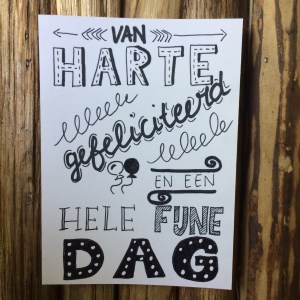 VAN
HARTE
gefeliciteerd
EN EEN
HELE FIJNE
DAG